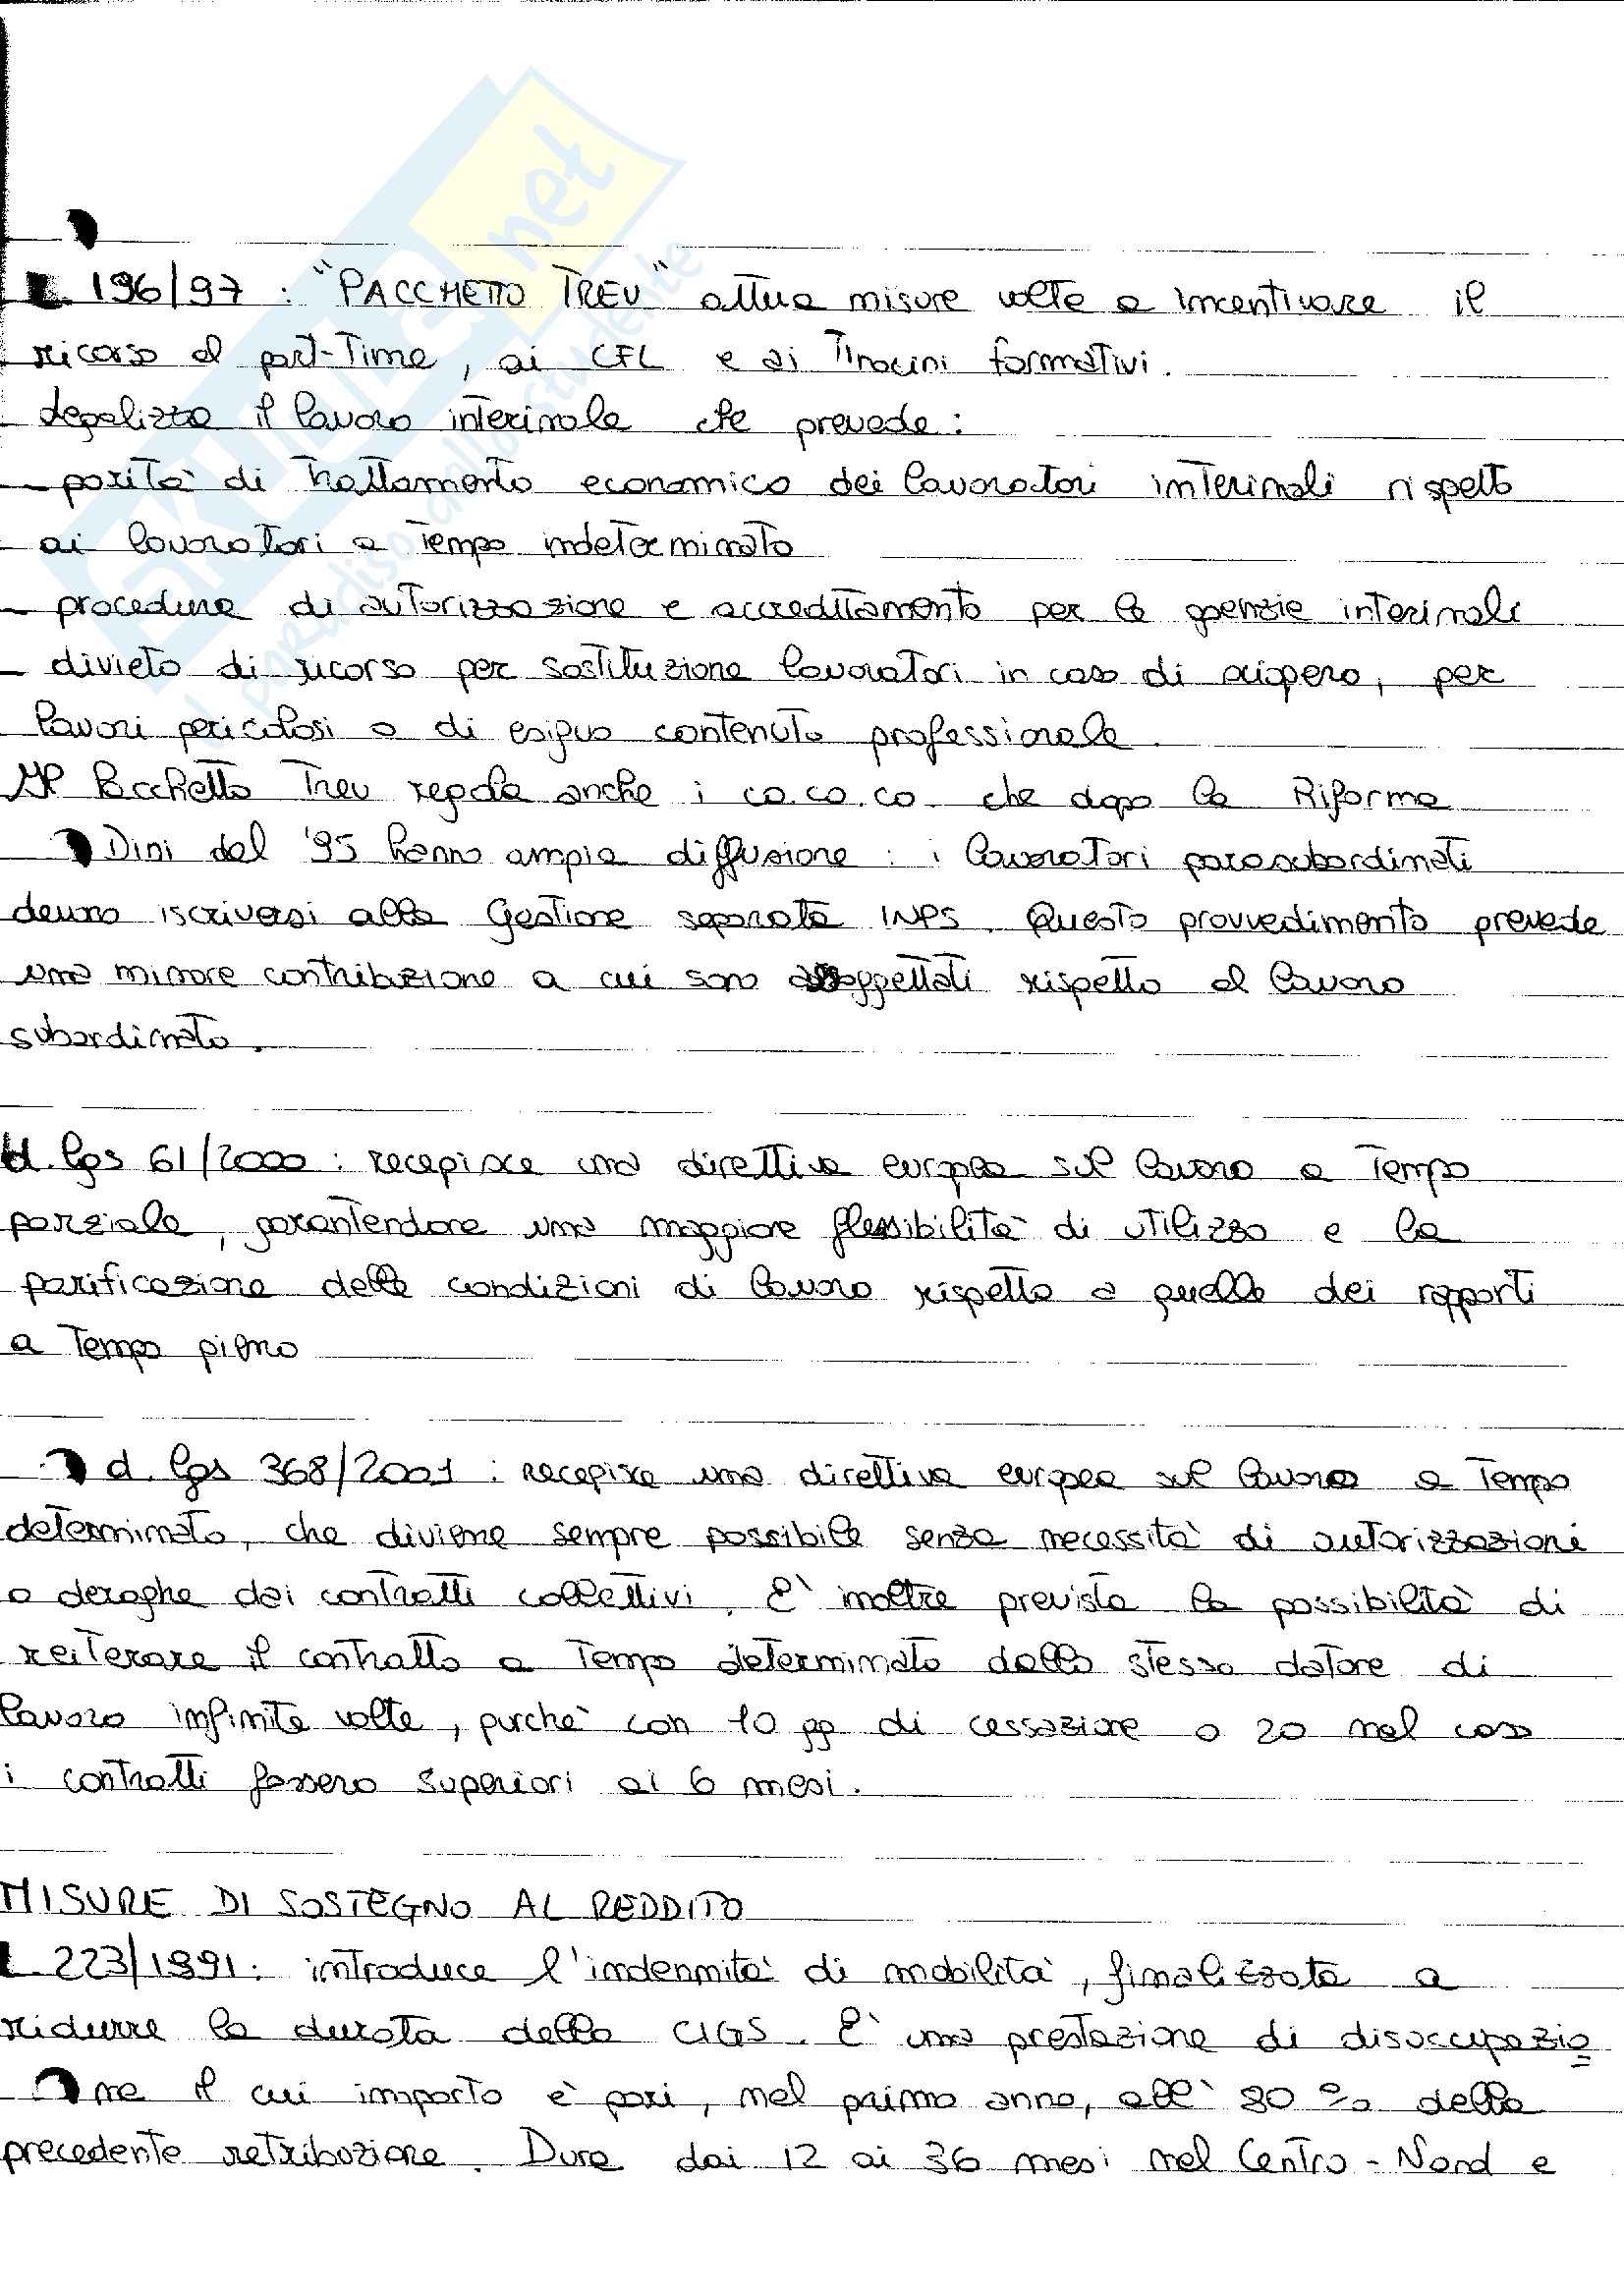 L. 196/97 : "PACCHETTO TREU" attua misure volte a incentivare il
ricorso al part-time, ai CFL e ai tirocini formativi.
Legalizza il lavoro interinale che prevede:
- parità di trattamento economico dei lavoratori interinali rispetto
ai lavoratori a tempo indeterminato
- procedure di autorizzazione e accreditamento per le agenzie interinali
- divieto di ricorso per sostituzione lavoratori in caso di sciopero, per
lavori pericolosi o di esiguo contenuto professionale.
Il Pacchetto Treu regola anche i co.co.co. che dopo la Riforma
Dini del '95 hanno ampia diffusione : i lavoratori parasubordinati
devono iscriversi alla Gestione separata INPS. Questo provvedimento prevede
una minore contribuzione a cui sono assoggettati rispetto al lavoro
subordinato.
d. lgs 61/2000 : recepisce una direttiva europea sul lavoro a tempo
parziale, garantendone una maggiore flessibilità di utilizzo e la
parificazione delle condizioni di lavoro rispetto a quelle dei rapporti
a tempo pieno
d. lgs 368/2001 : recepisce una direttiva europea sul lavoro a tempo
determinato, che diviene sempre possibile senza necessità di autorizzazioni
o deroghe dai contratti collettivi. E' inoltre prevista la possibilità di
reiterare il contratto a tempo determinato dallo stesso datore di
lavoro infinite volte, purchè con 10 gg di cessazione o 20 nel caso
i contratti fossero superiori ai 6 mesi.
MISURE DI SOSTEGNO AL REDDITO
L. 223/1991: introduce l'indennità di mobilità, finalizzata a
ridurre la durata della CIGS. E' una prestazione di disoccupazio=
ne il cui importo è pari, nel primo anno, all' 80 % della
precedente retribuzione. Dura dai 12 ai 36 mesi nel Centro-Nord e
SKUOLA.net
il paradiso dello studente